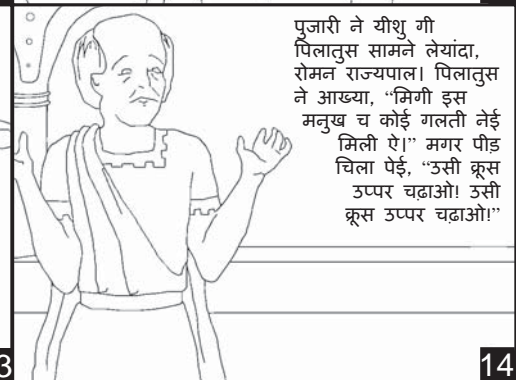 पुजारी ने यीशु गी
पिलातुस सामने लेयांदा,
रोमन राज्यपाल। पिलातुस
ने आख्या, “मिगी इस
मनुख च कोई गलती नेई
मिली ऐ।” मगर पीड़
चिला पेई, “उसी क्रूस
उप्पर चढ़ाओ! उसी
क्रूस उप्पर चढ़ाओ!”
3
14